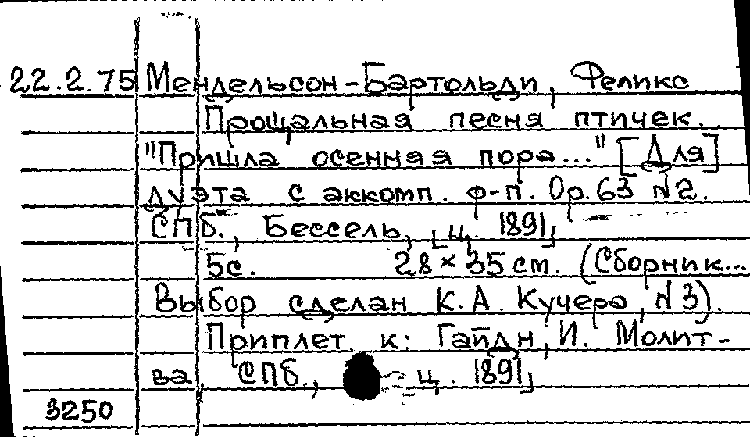 22.2.75 Мендельсон-Бартольди, Феликс
Прощальная песня птичек.
"Пришла осенняя пора..." [Для]
дуэта с аккомп. ф-п. Op.63 №2.
СПб., Бессель, [ц. 1891]
5с. 28×35 cm. (Сборник...
Выбор сделан К.А. Кучера, №3).
Приплет. к: Гайдн, И. Молит-
ва, СПб., ц. 1891]
3250